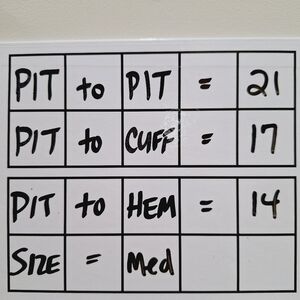 PIT to PIT = 21
PIT to CUFF = 17
PIT to HEM = 14
SIZE = Med